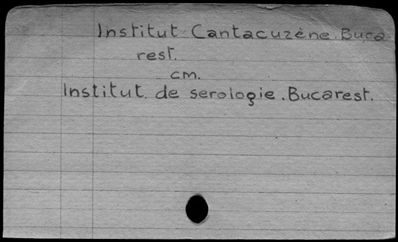 Institut Cantacuzène. Buca
rest.
cm.
Institut de serologie. Bucarest.